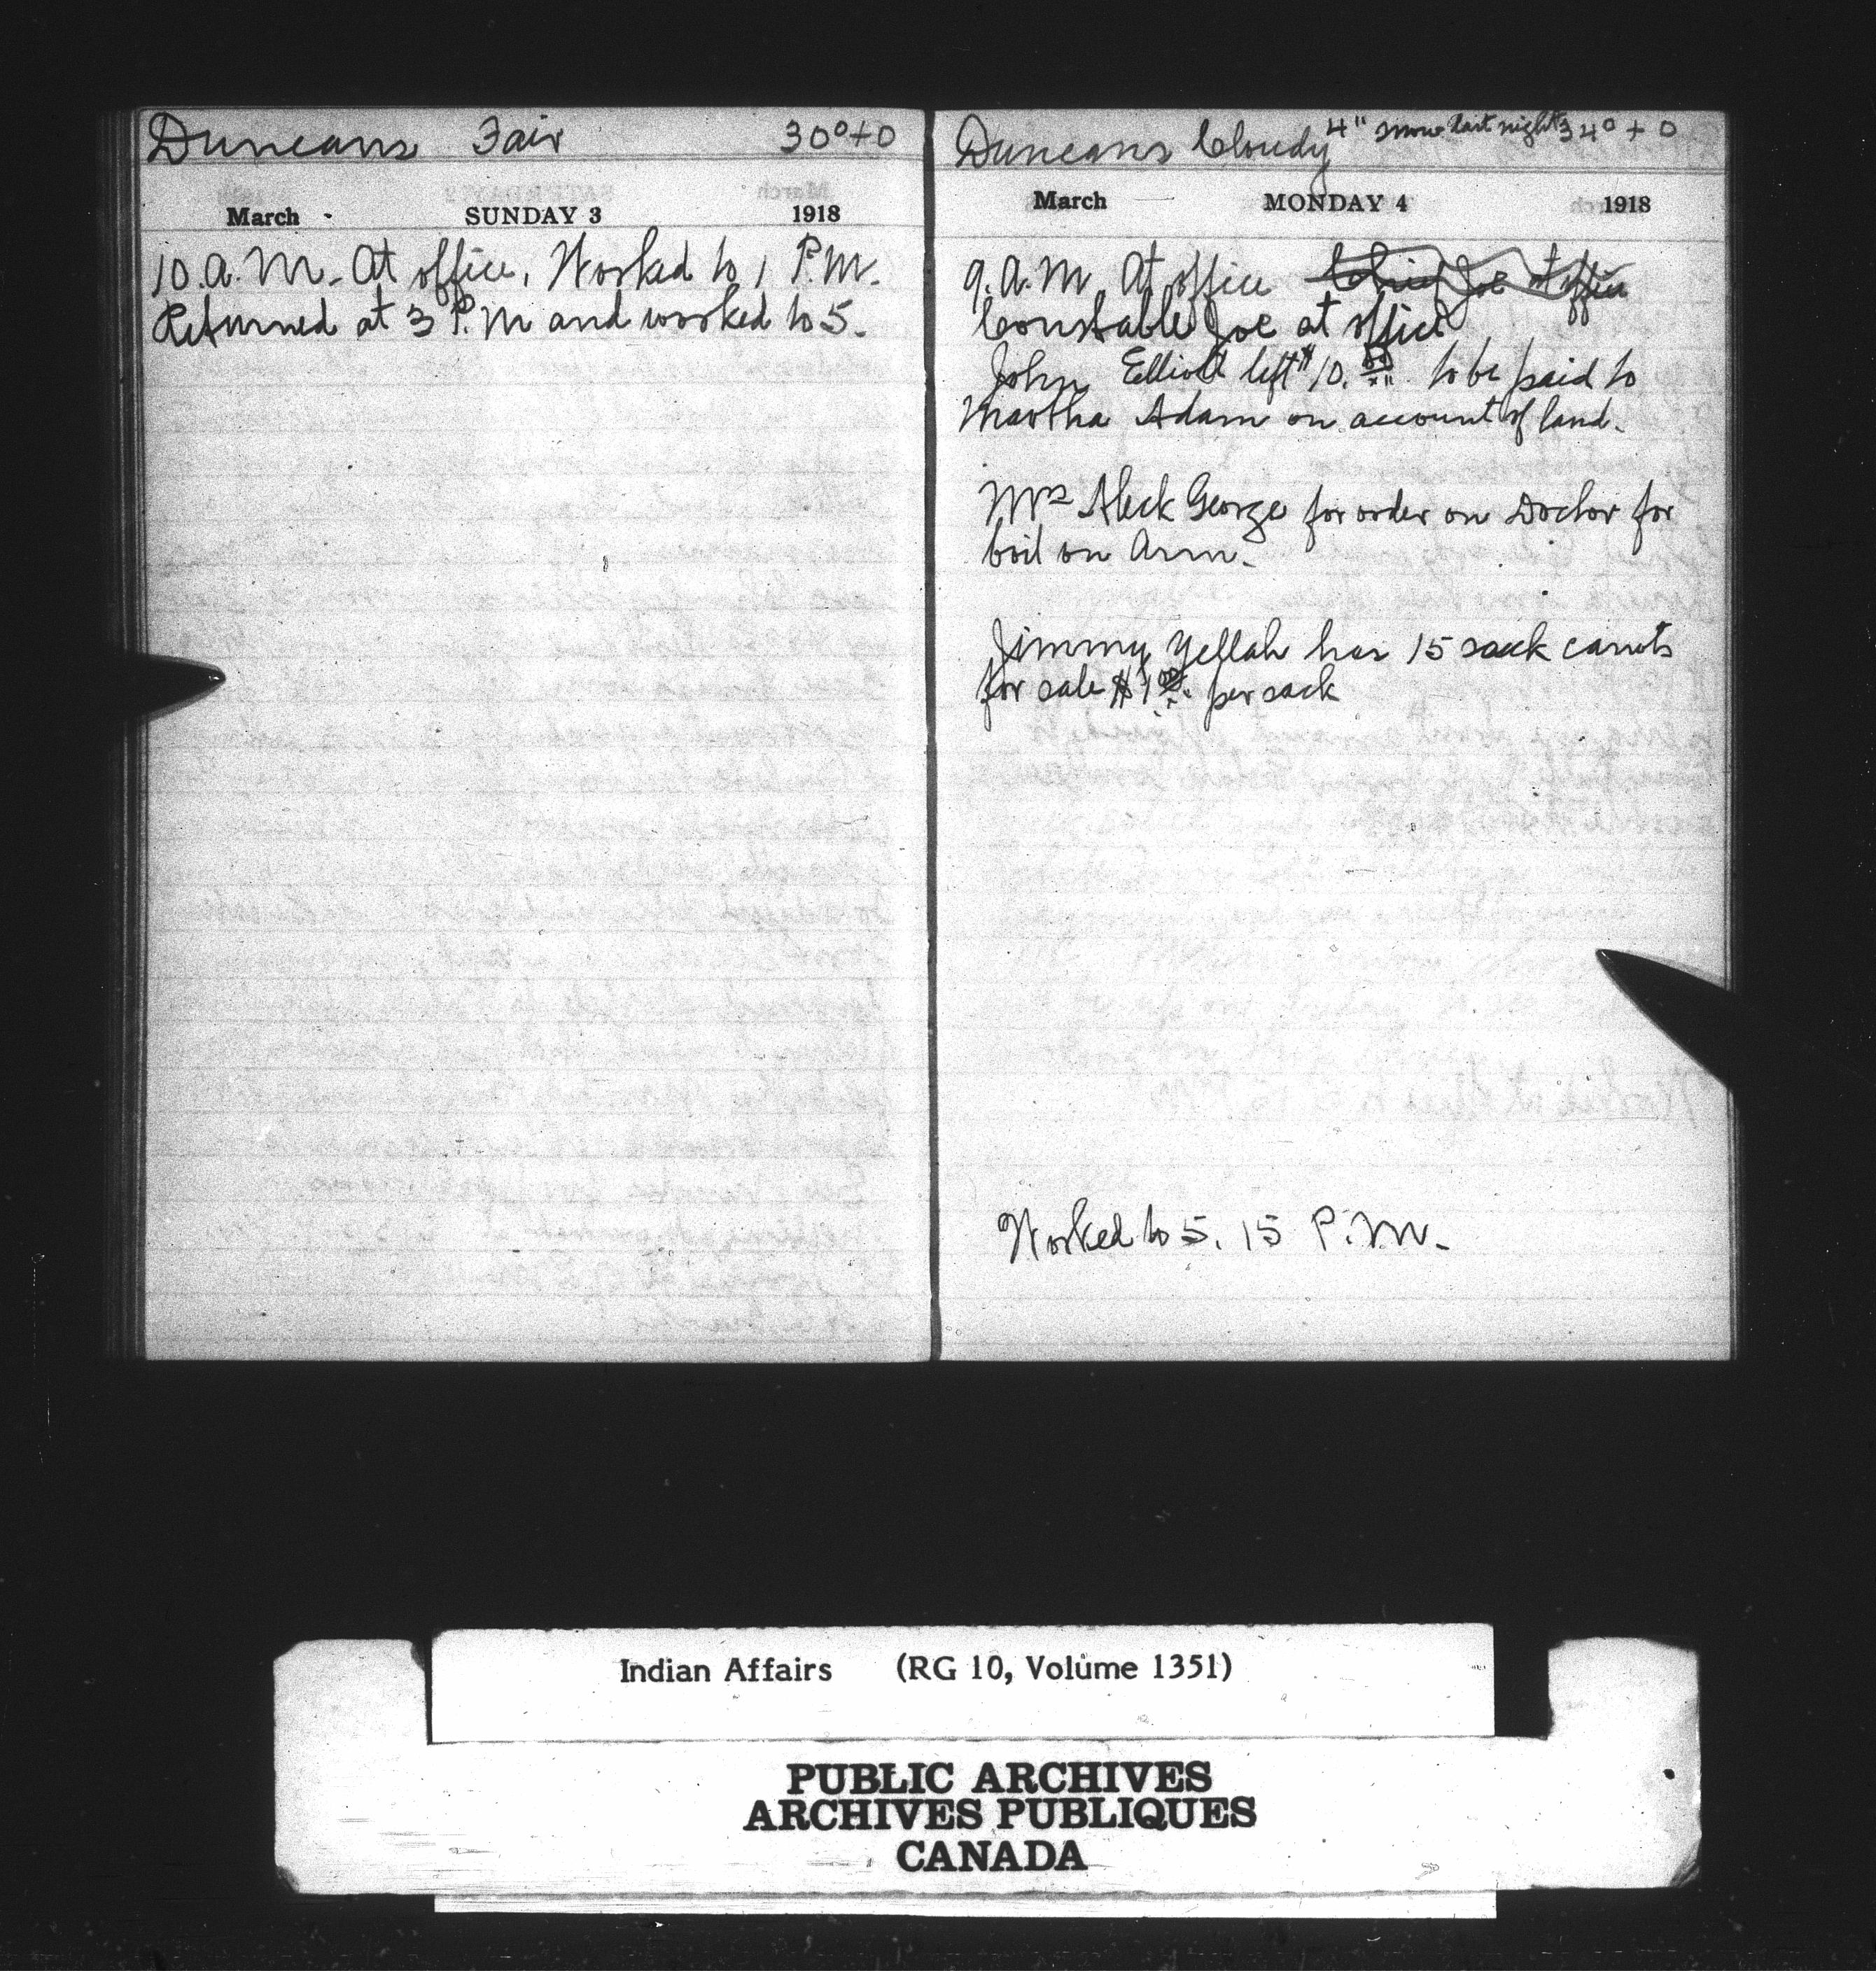 Duncans Fair 30°+0
March SUNDAY 3 1918
10.a.m. At office, Worked to 1 P.M.
Returned at 3 P.M and worked to 5.
Duncans Cloudy 4" snow last night 34°+0
March MONDAY 4 1918
9.a.m. At office Chief Joe at office
Constable Joe at office
John Elliott left $10.00 to be paid to
Martha Adam on account of land.
Mrs Aleck George for order on Doctor for
boil on Arm.
Jimmy Yellah has 15 sack carrots
for sale $1.00 per sack
Worked to 5.15 P.M.
Indian Affairs (RG 10, Volume 1351)
PUBLIC ARCHIVES
ARCHIVES PUBLIQUES
CANADA